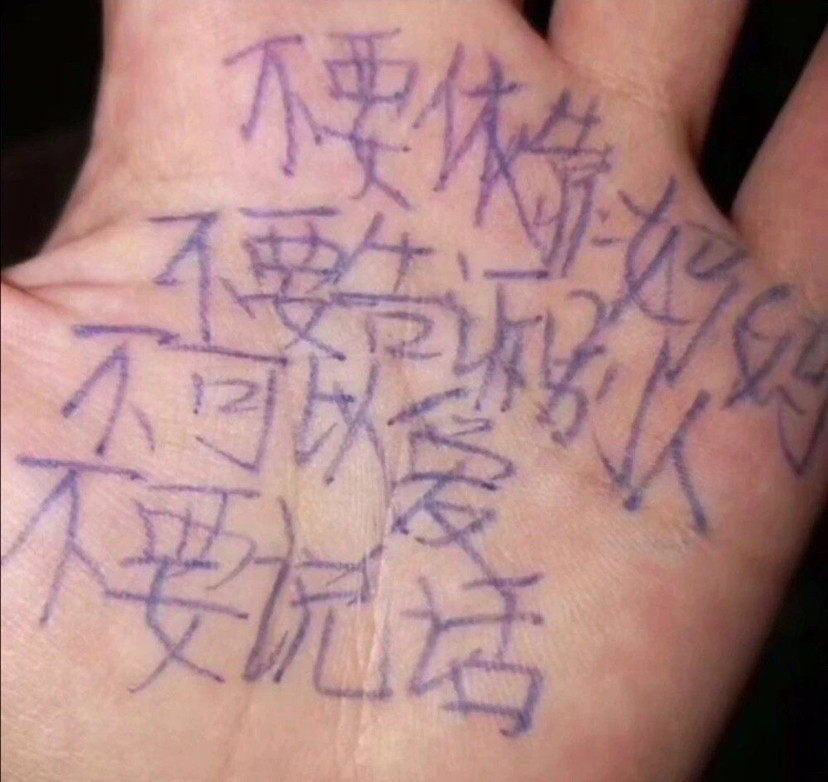 不要休靠妈妈
不要告诉别人
不可以爱
不要说话